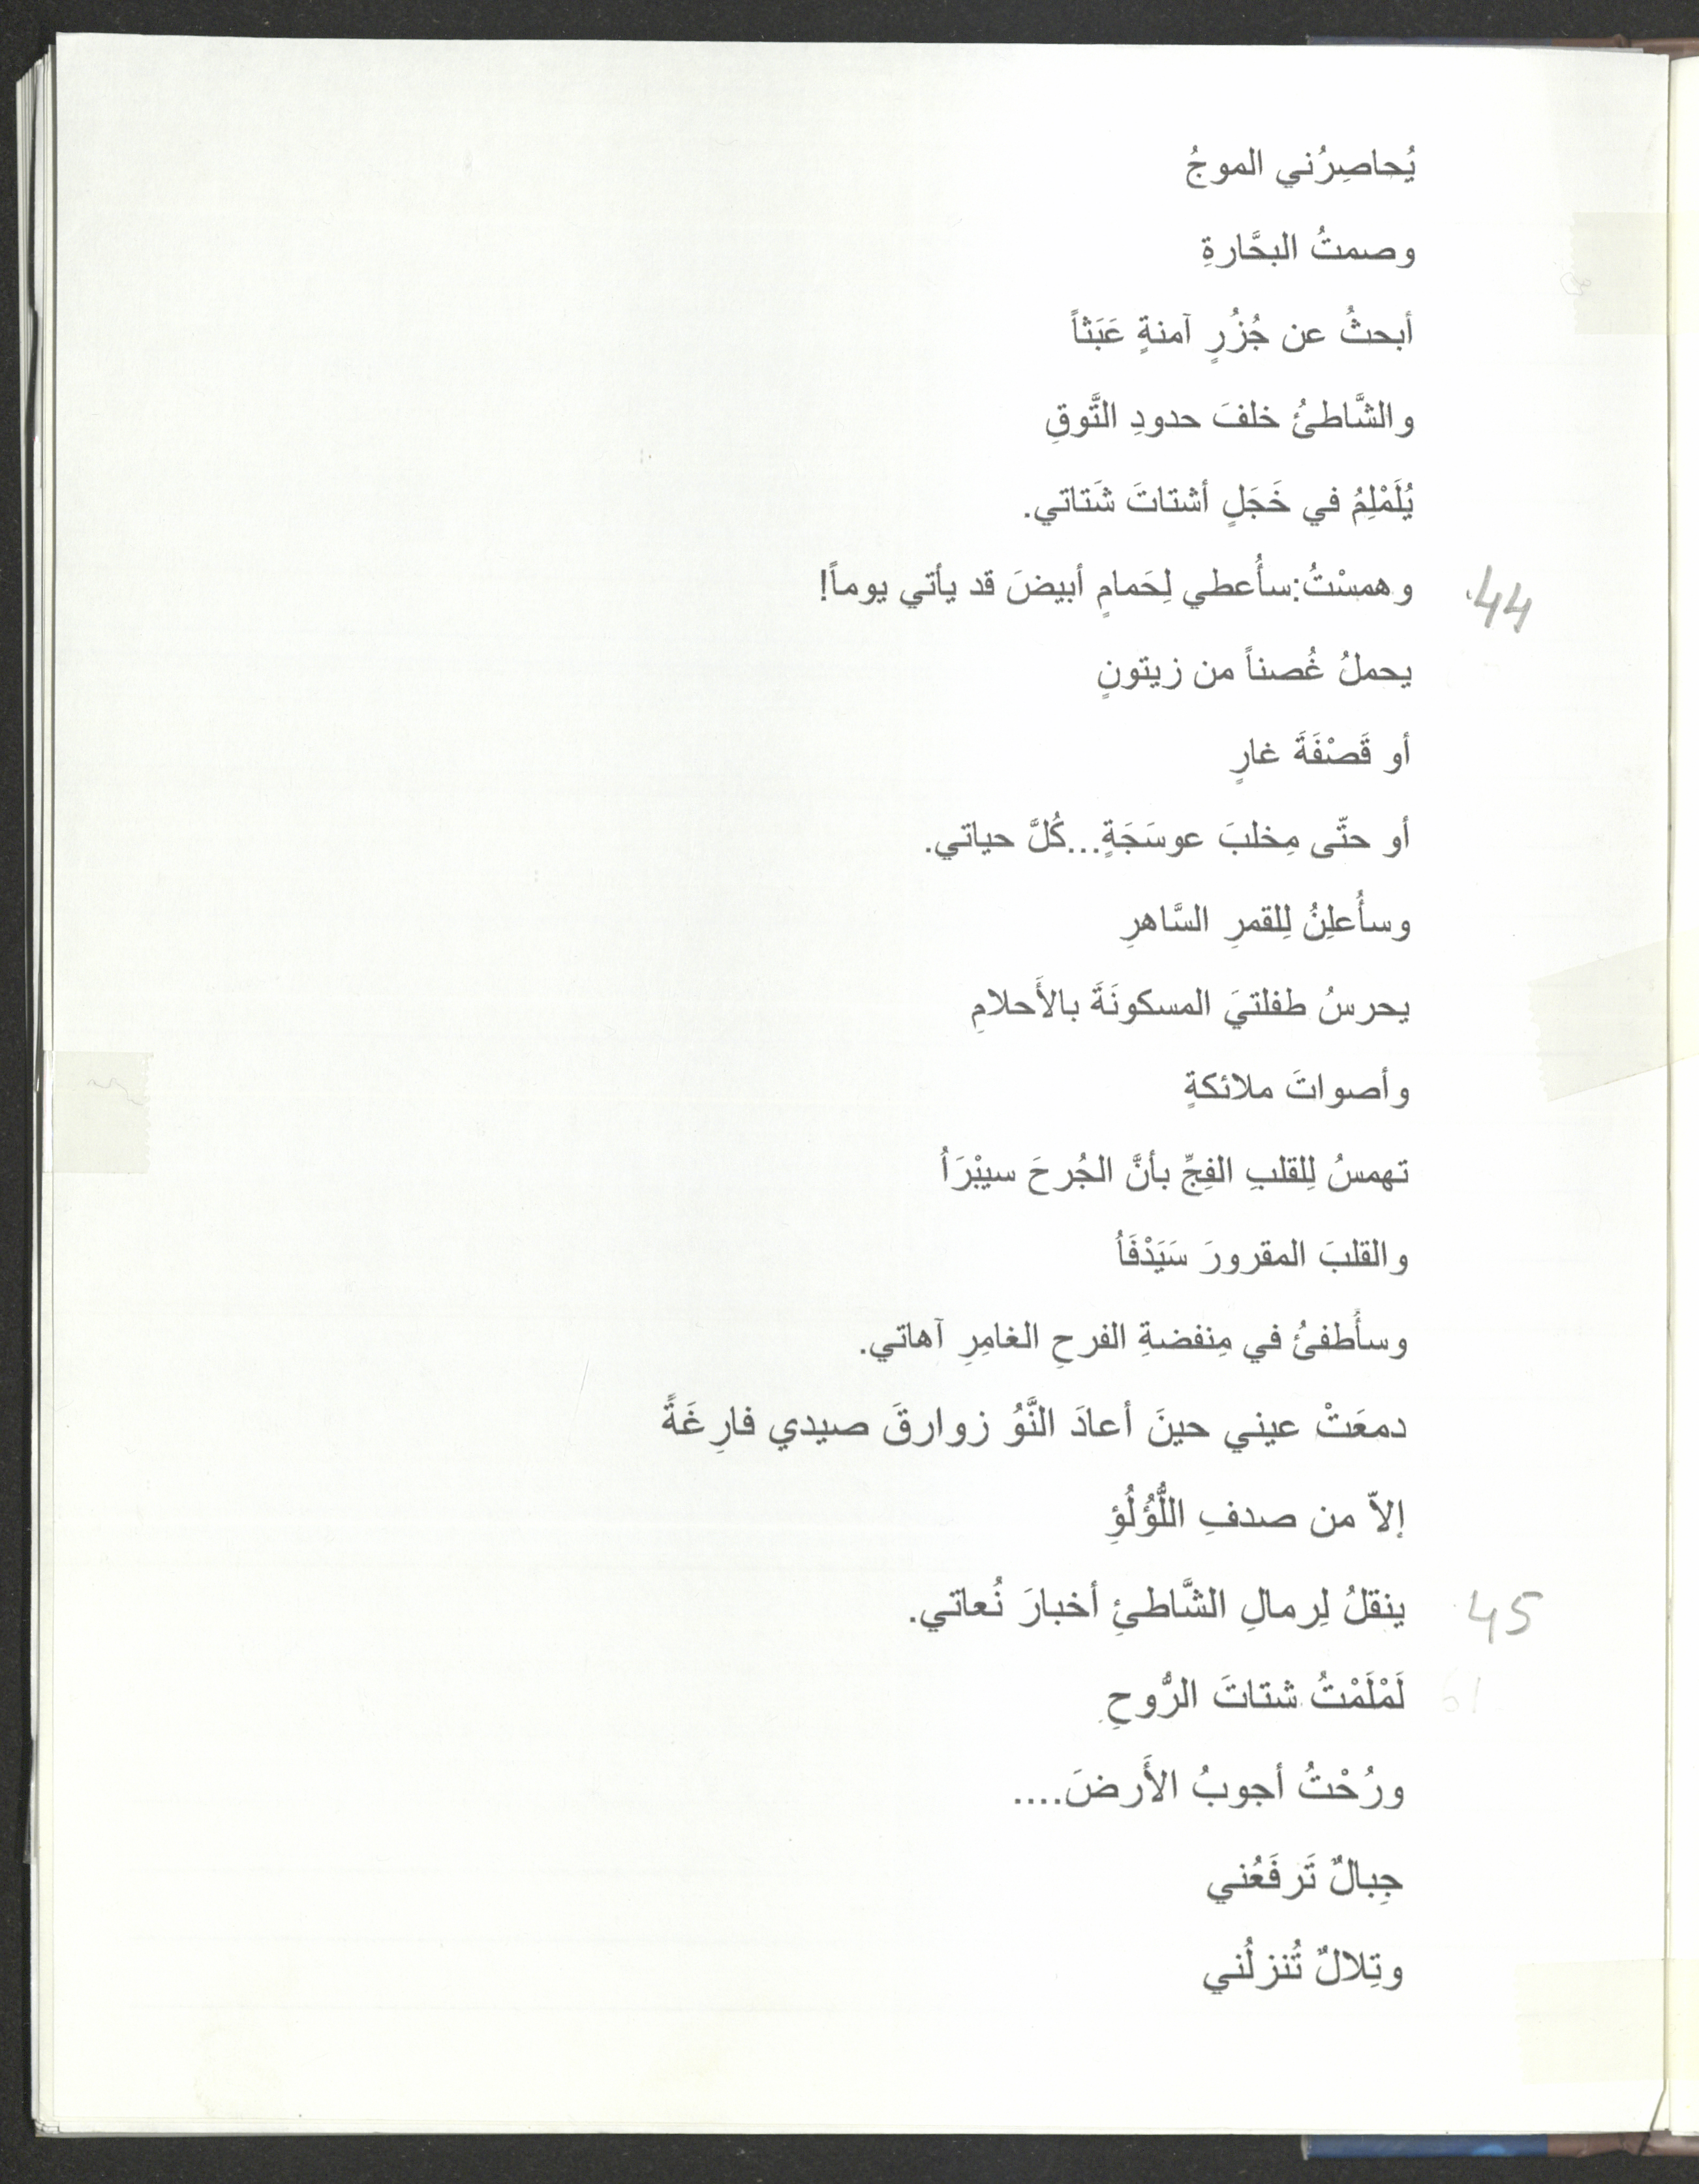 يُحاصِرُني الموجُ
وصمتُ البحَّارةِ
أبحثُ عن جُزُرٍ آمنةٍ عَبَثاً
والشَّاطئُ خلفَ حدودِ التَّوقِ
يُلَمْلِمُ في خَجَلٍ أشتاتَ شَتاتي.
44 وهمسْتُ:سأُعطي لِحَمامٍ أبيضَ قد يأتي يوماً!
يحملُ غُصناً من زيتونٍ
أو قَصْفَةَ غارٍ
أو حتّى مِخلبَ عوسَجَةٍ...كُلَّ حياتي.
وسأُعلِنُ لِلقمرِ السَّاهرِ
يحرسُ طفلتيَ المسكونَةَ بالأَحلامِ
وأصواتَ ملائكةٍ
تهمسُ لِلقلبِ الفِجِّ بأنَّ الجُرحَ سيبْرَأُ
والقلبَ المقرورَ سَيَدْفَأُ
وسأُطفئُ في مِنفضةِ الفرحِ الغامِرِ آهاتي.
دمعَتْ عيني حينَ أعادَ النَّوُ زوارقَ صيدي فارِغَةً
إلاّ من صدفِ اللُّؤْلُؤِ
45 ينقلُ لِرمالِ الشَّاطئِ أخبارَ نُعاتي.
لَمْلَمْتُ شتاتَ الرُّوحِ
ورُحْتُ أجوبُ الأَرضَ....
جِبالٌ تَرفَعُني
وتِلالٌ تُنزلُني